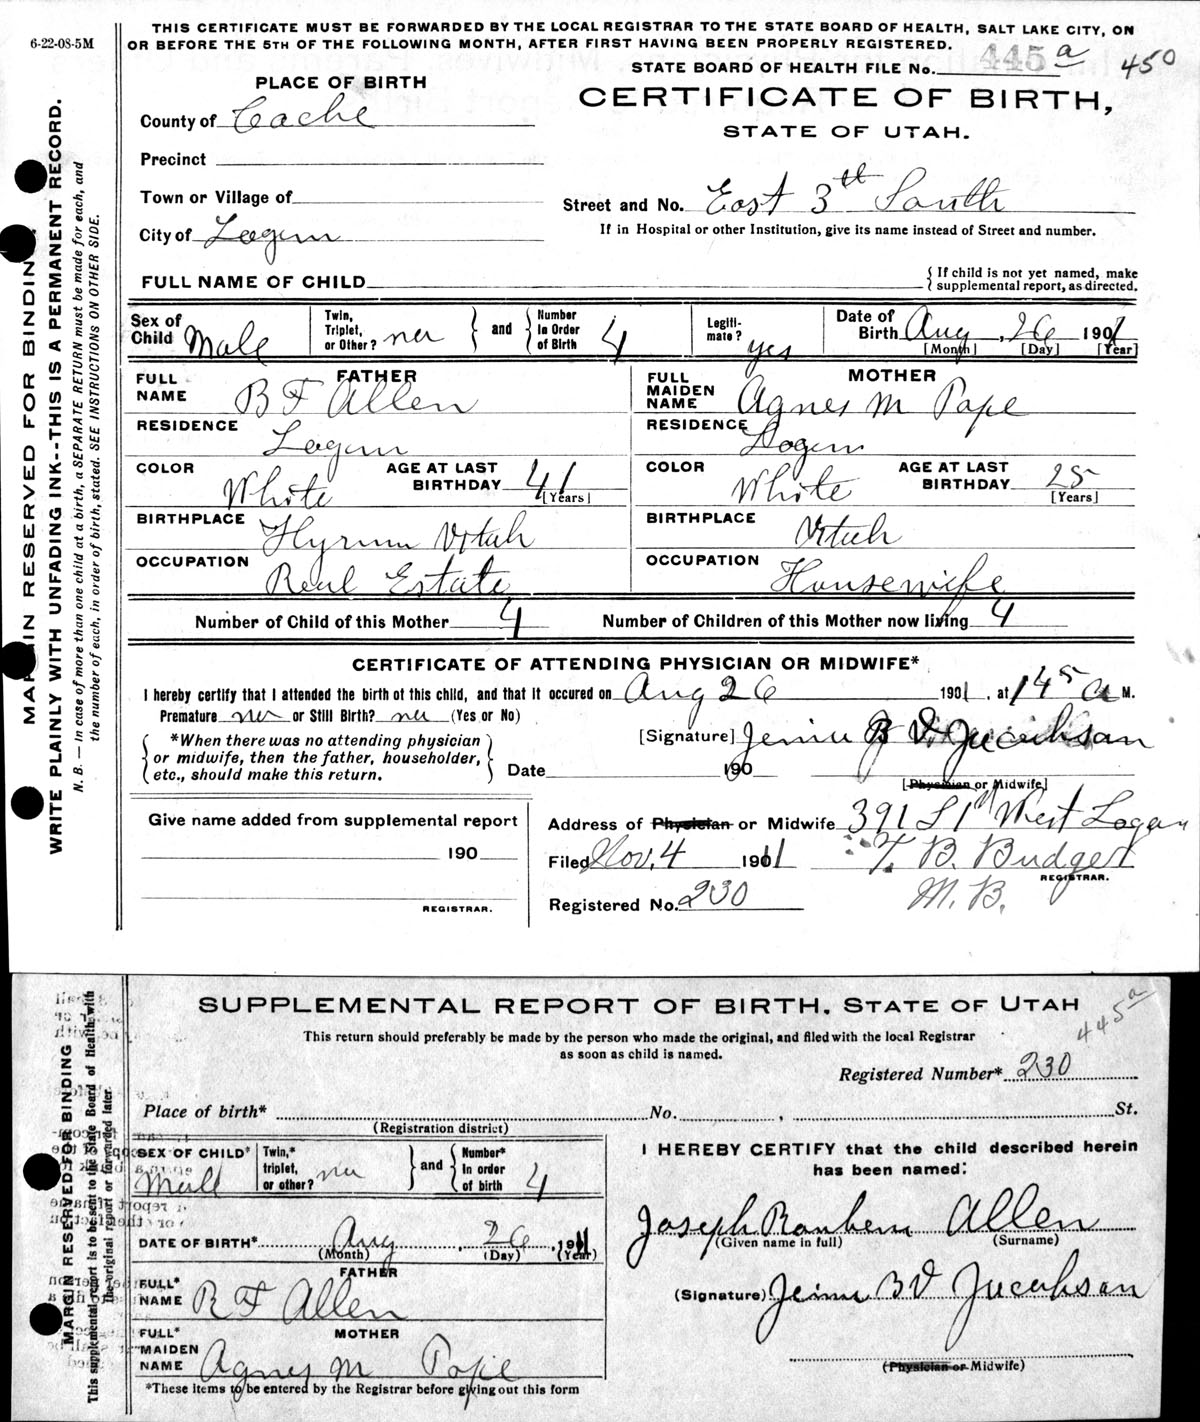 THIS CERTIFICATE MUST BE FORWARDED BY THE LOCAL REGISTRAR TO THE STATE BOARD OF HEALTH, SALT LAKE CITY, ON
6-22-08-5M
OR BEFORE THE 5TH OF THE FOLLOWING MONTH, AFTER FIRST HAVING BEEN PROPERLY REGISTERED.
STATE BOARD OF HEALTH FILE No. 445 a 450
PLACE OF BIRTH
CERTIFICATE OF BIRTH,
STATE OF UTAH.
County of Cache
Precinct
Town or Village of
Street and No. East 3th South
City of Logan
If in Hospital or other Institution, give its name instead of Street and number.
FULL NAME OF CHILD
{ If child is not yet named, make
supplemental report, as directed.
Sex of Child Male
Twin, Triplet, or Other? no
and
Number In Order of Birth 4
Legiti- mate? yes
Date of Birth Aug 26 1901
[Month] [Day] [Year]
FATHER
FULL NAME B F Allen
MOTHER
FULL MAIDEN NAME Agnes M Pope
RESIDENCE Logan
RESIDENCE Logan
COLOR White AGE AT LAST BIRTHDAY 41 [Years]
COLOR White AGE AT LAST BIRTHDAY 25 [Years]
BIRTHPLACE Hyrum Utah
BIRTHPLACE Utah
OCCUPATION Real Estate
OCCUPATION Housewife
Number of Child of this Mother 4
Number of Children of this Mother now living 4
CERTIFICATE OF ATTENDING PHYSICIAN OR MIDWIFE*
I hereby certify that I attended the birth of this child, and that it occured on Aug 26 1901, at 145 a M.
Premature no or Still Birth? no (Yes or No)
*When there was no attending physician
or midwife, then the father, householder,
etc., should make this return.
[Signature] Jennie B V Jacobson
Date 190
[Physician or Midwife]
Give name added from supplemental report
190
REGISTRAR.
Address of Physician or Midwife 391 S 1st West Logan
Filed Nov. 4 1911 T. B. Budge
REGISTRAR.
Registered No. 230
MARGIN RESERVED FOR BINDING.
WRITE PLAINLY WITH UNFADING INK--THIS IS A PERMANENT RECORD.
N. B. — In case of more than one child at a birth, a SEPARATE RETURN must be made for each, and
the number of each, in order of birth, stated. SEE INSTRUCTIONS ON OTHER SIDE.
SUPPLEMENTAL REPORT OF BIRTH, STATE OF UTAH
445 a
This return should preferably be made by the person who made the original, and filed with the local Registrar
as soon as child is named.
Registered Number* 230
Place of birth* No. , St.
(Registration district)
SEX OF CHILD* Male
Twin,* triplet, or other? no
and
Number* In order of birth 4
DATE OF BIRTH* Aug, 26, 1911
(Month) (Day) (Year)
FATHER
FULL* NAME B F Allen
MOTHER
FULL* MAIDEN NAME Agnes M Pope
*These items to be entered by the Registrar before giving out this form
I HEREBY CERTIFY that the child described herein
has been named:
Joseph Allen
(Given name in full) (Surname)
(Signature) Jennie B V Jacobson
(Physician or Midwife)
MARGIN RESERVED FOR BINDING
This supplemental report is to be sent to the State Board of Health with
the original report or forwarded later.